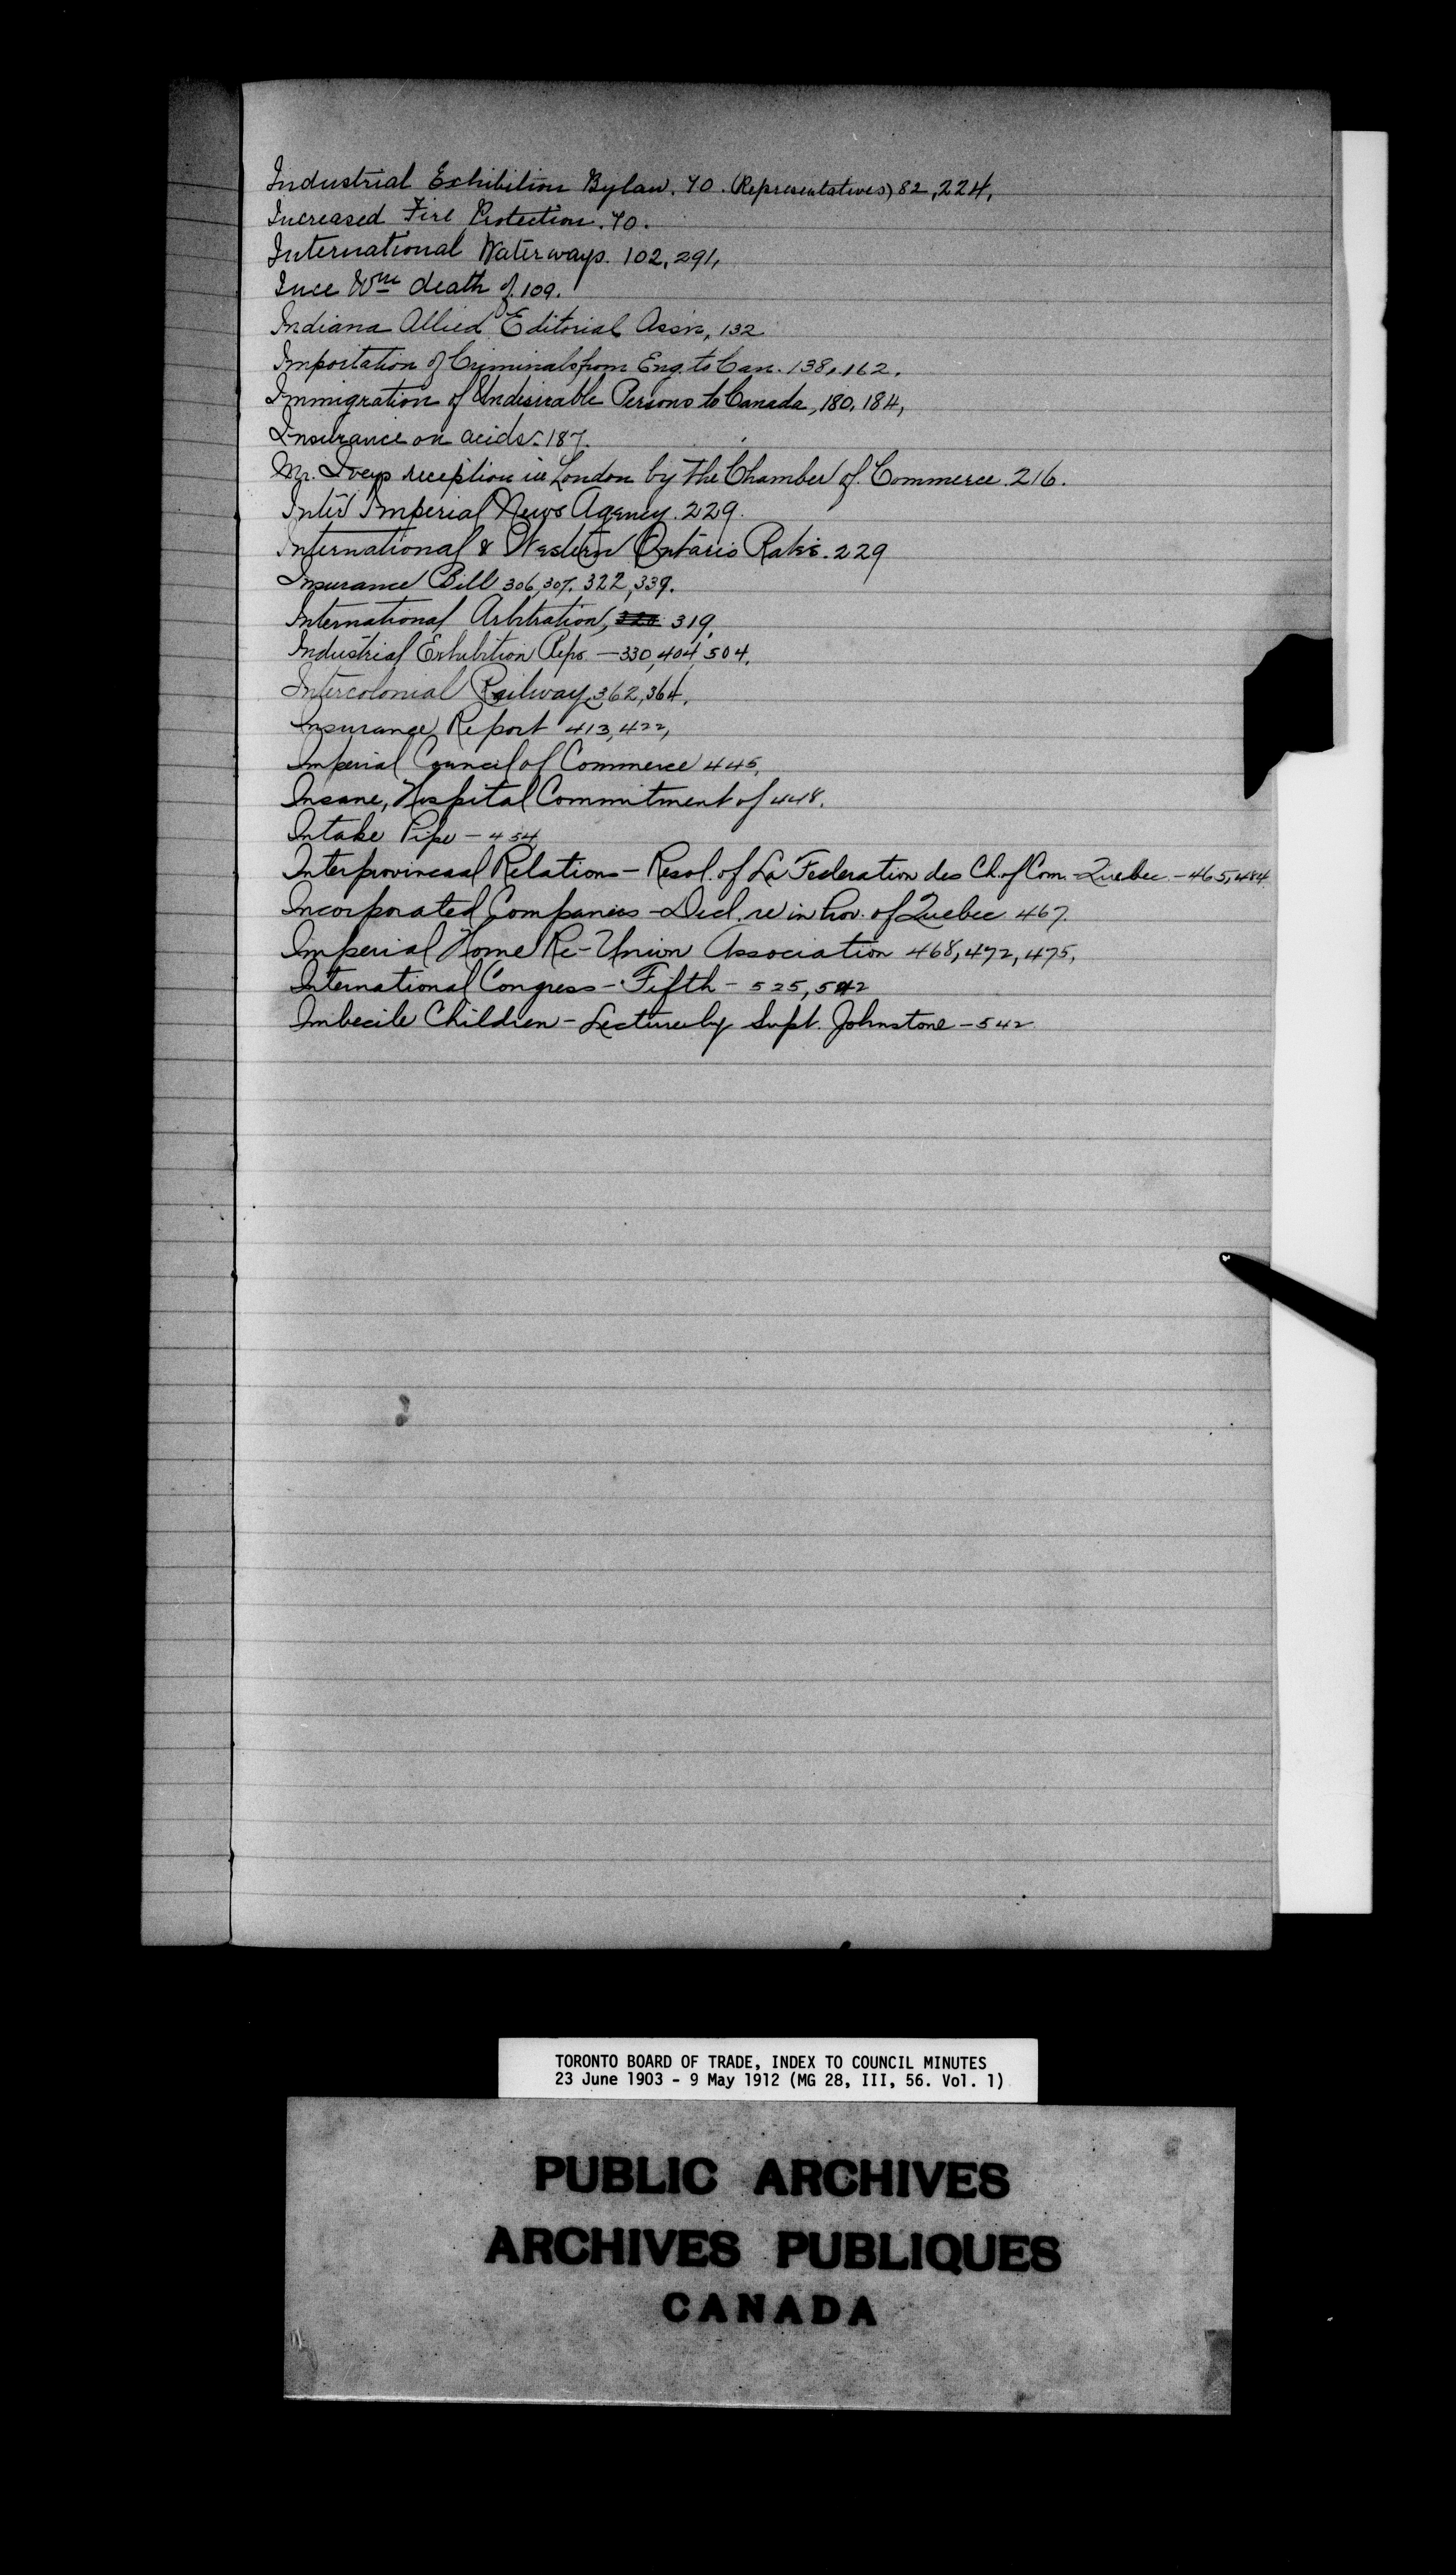 Industrial Exhibition Bylaw. 70. (Representatives) 82, 224,
Increased Fire Protection. 70.
International Waterways. 102, 291,
Ince Wm death of. 109.
Indiana Allied Editorial Assn, 132
Importation of Criminals from Eng. to Can. 138, 162,
Immigration of Undesirable Persons to Canada, 180, 184,
Insurance on acids. 187.
Mr. Iveys reception in London by the Chamber of Commerce. 216.
Inter Imperial News Agency. 229.
International & Western Ontario Rates. 229
Insurance Bill 306, 307. 322, 339.
International Arbitration, 319,
Industrial Exhibition Reps — 330, 404, 504,
Intercolonial Railway, 362, 364,
Insurance Report 413, 422,
Imperial Council of Commerce 445,
Insane, Hospital Commitment of 448.
Intake Pipe - 454
Interprovincial Relations - Resol. of La Federation des Ch. of Com. - Quebec - 465, 484
Incorporated Companies - Decl. re in Prov. of Quebec 467.
Imperial Home Re-Union Association 468, 472, 475,
International Congress - Fifth - 525, 542
Imbecile Children - Lecture by Supt. Johnstone - 542
TORONTO BOARD OF TRADE, INDEX TO COUNCIL MINUTES
23 June 1903 - 9 May 1912 (MG 28, III, 56. Vol. 1)
PUBLIC ARCHIVES
ARCHIVES PUBLIQUES
CANADA